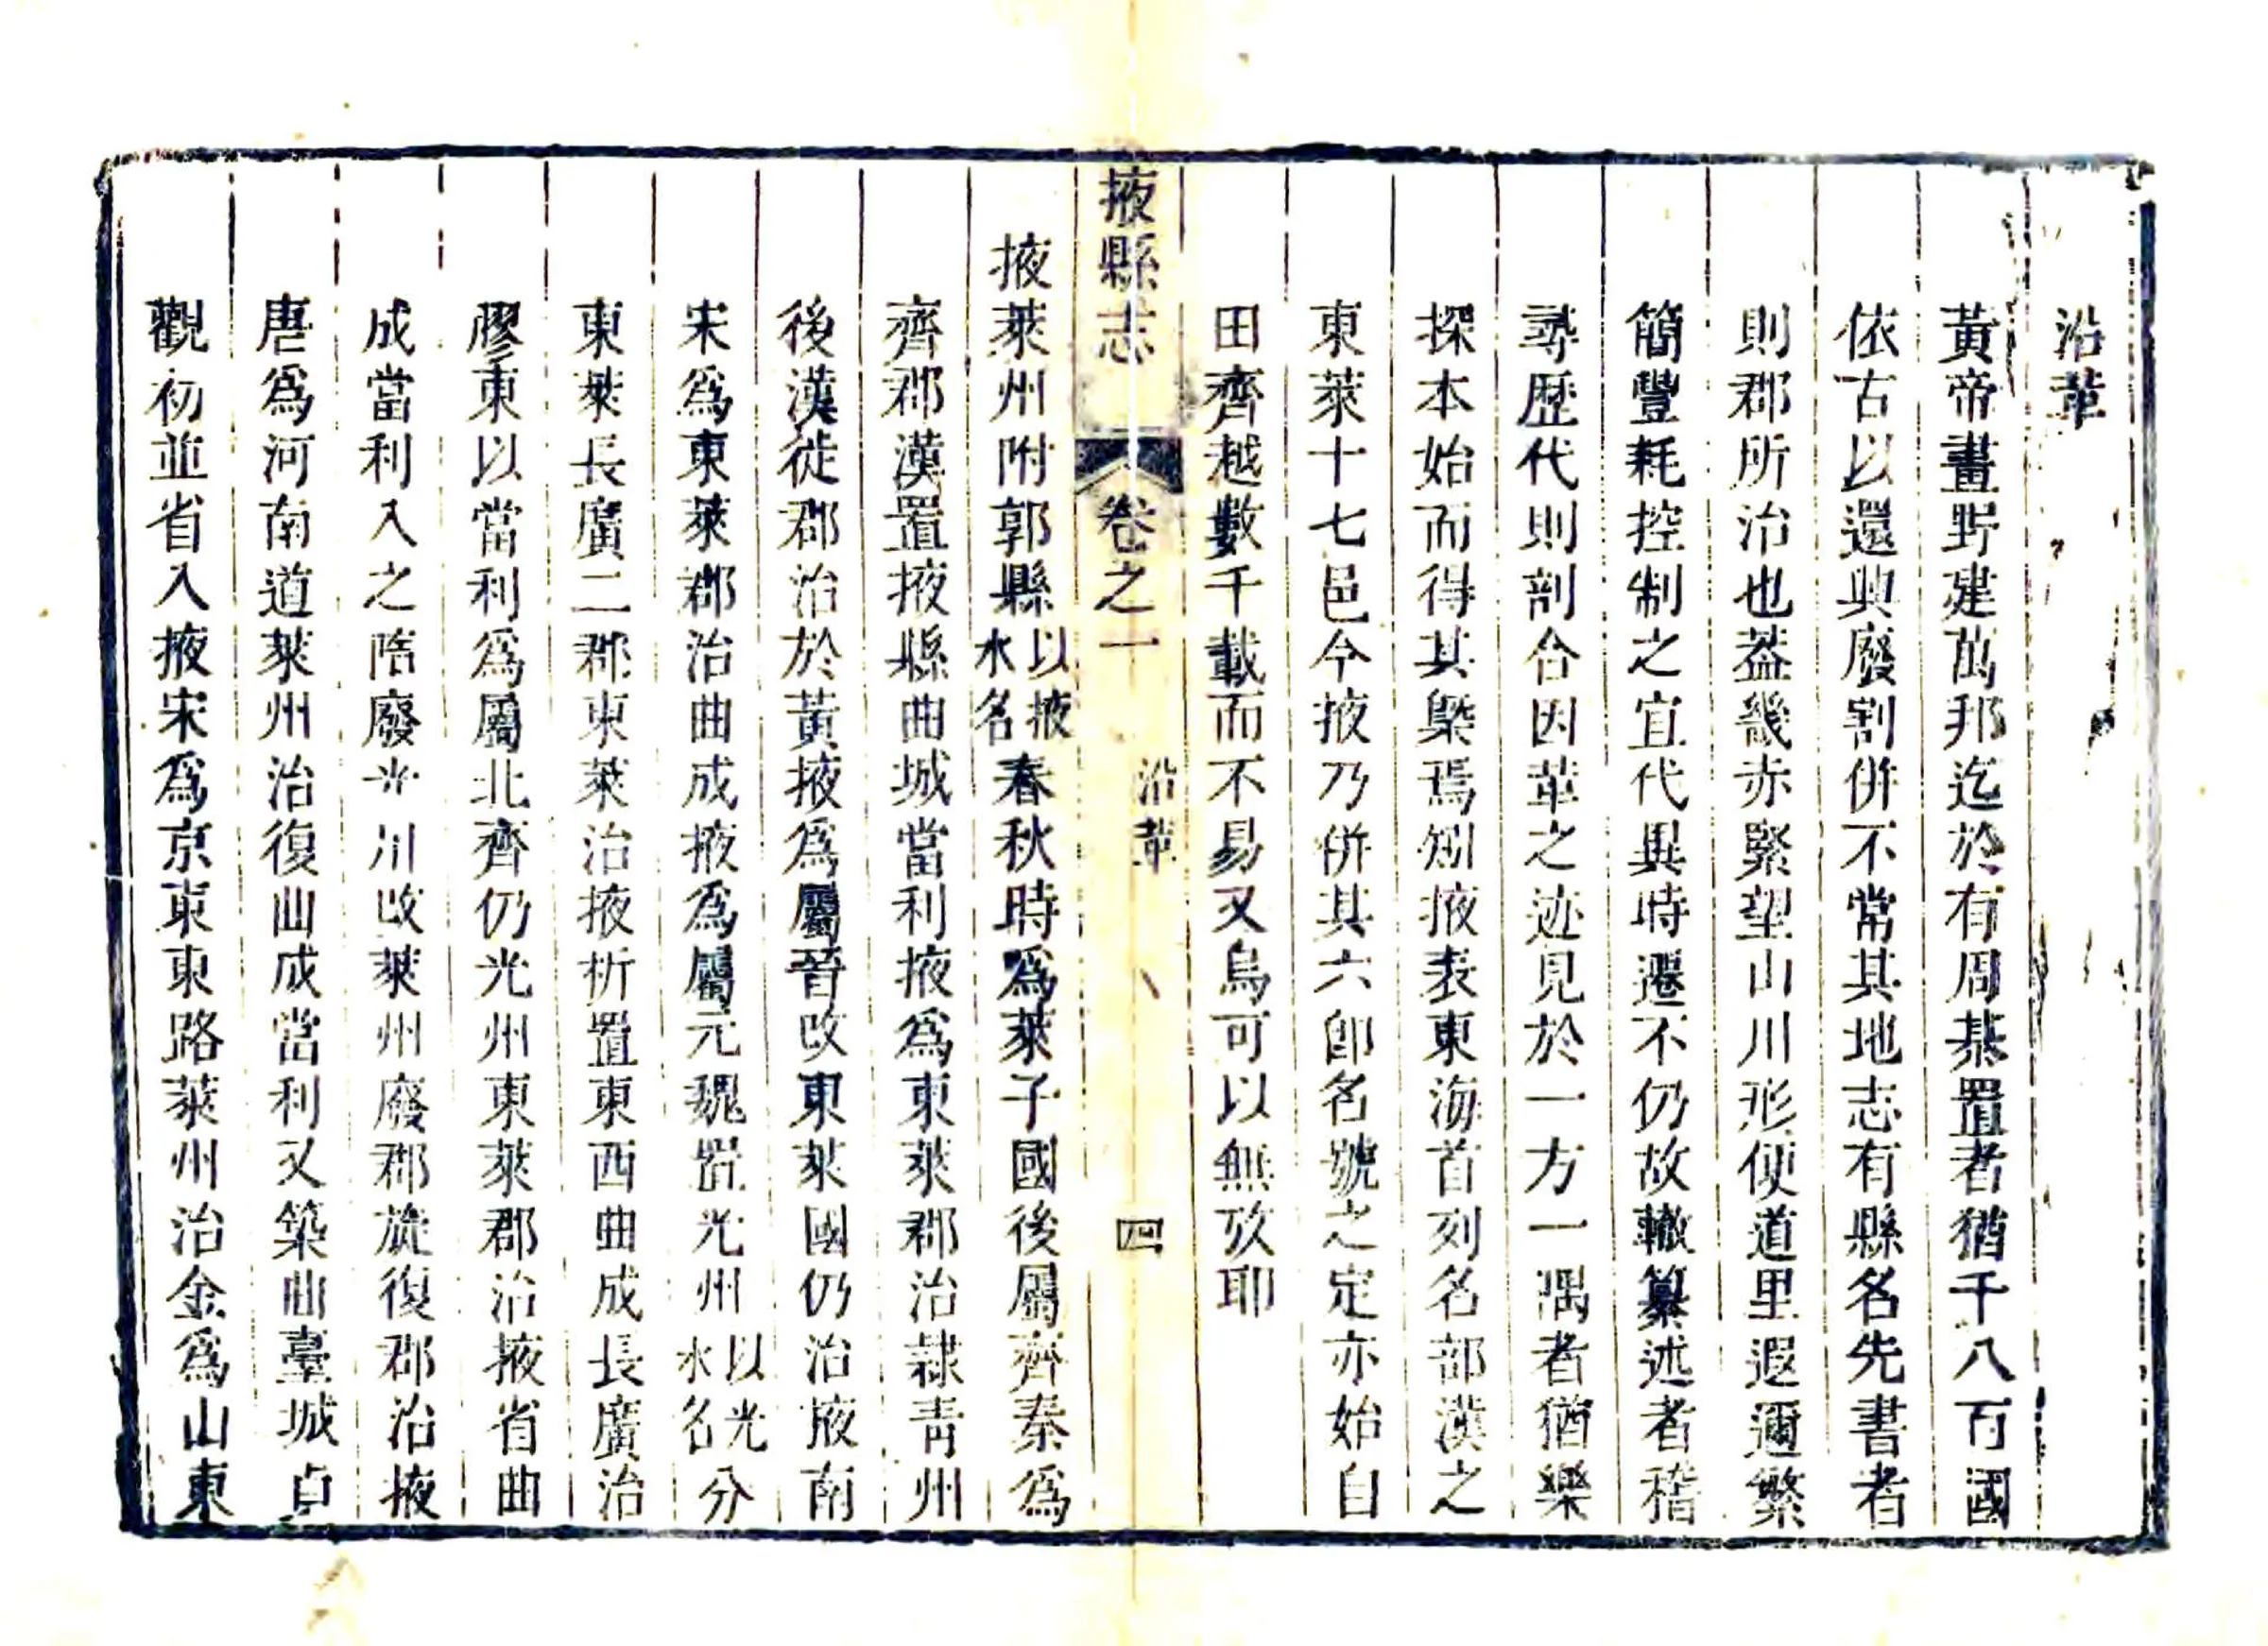 沿革
黃帝畫野建萬邦迄於有周綦置者猶千八百國
依古以還興廢割併不常其地志有縣名先書者
則郡所治也葢畿赤緊望山川形便道里遐邇繁
簡豐耗控制之宜代異時遷不仍故轍纂述者稽
尋歷代則剖合因革之迹見於一方一隅者猶樂
探本始而得其槩焉矧掖表東海首列名部漢之
東萊十七邑今掖乃併其六卽名號之定亦始自
田齊越數千載而不易又烏可以無攷耶
掖縣志 卷之一 沿革 四
掖萊州附郭縣以掖水名春秋時爲萊子國後屬齊秦爲
齊郡漢置掖縣曲城當利掖爲東萊郡治隷靑州
後漢徙郡治於黃掖爲屬晉改東萊國仍治掖南
宋爲東萊郡治曲成掖爲屬元魏置光州以光水名分
東萊長廣二郡東萊治掖析置東西曲成長廣治
膠東以當利爲屬北齊仍光州東萊郡治掖省曲
成當利入之隋廢光州改萊州廢郡旋復郡治掖
唐爲河南道萊州治復曲成當利又築曲臺城貞
觀初並省入掖宋爲京東東路萊州治金爲山東